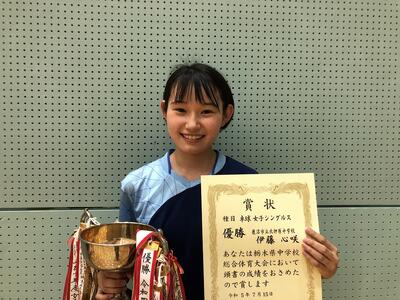 賞状
種目 卓球 女子シングルス
優勝
鹿沼市立北押原中学校
伊藤 心咲
あなたは栃木県中学校
総合体育大会において
頭書の成績をおさめた
ので賞します
令和5年7月
優勝